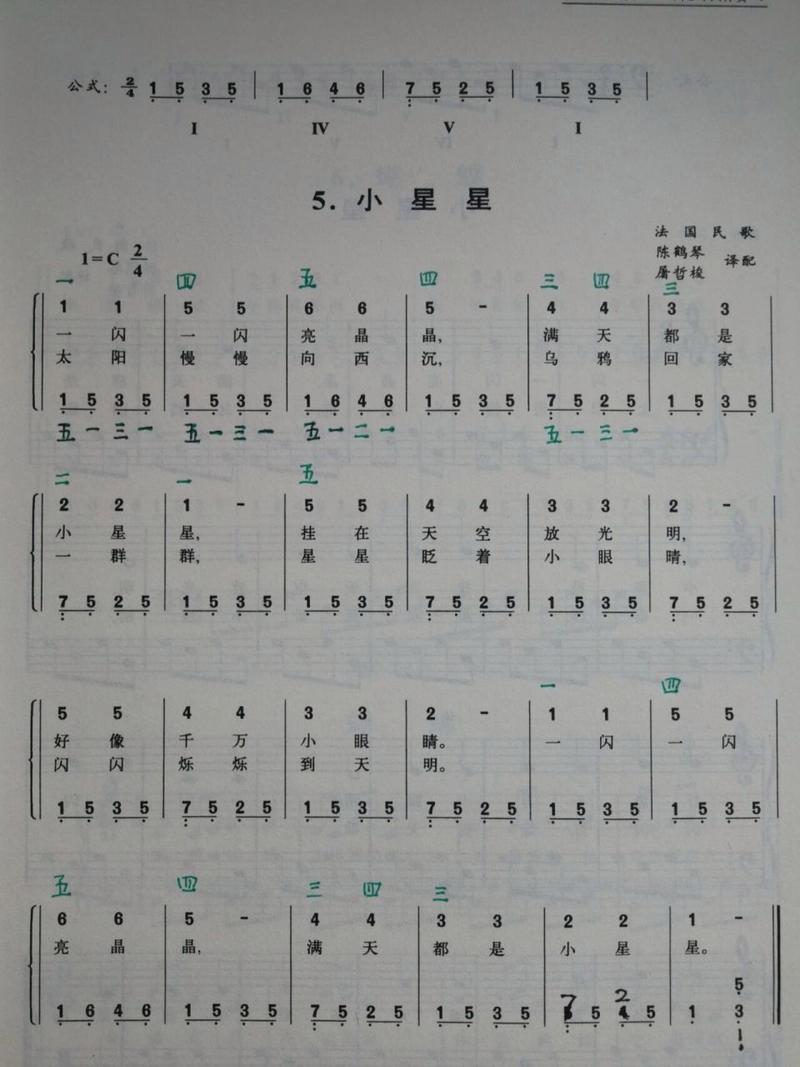 公式: 2/4 1 5 3 5 | 1 6 4 6 | 7 5 2 5 | 1 5 3 5 |
I IV V I
5. 小 星 星
法 国 民 歌
陈鹤琴
屠哲梭 译配
1=C 2/4
一 四 五 四 三 四 三
1 1 | 5 5 | 6 6 | 5 - | 4 4 | 3 3
一 闪 一 闪 亮 晶 晶, 满 天 都 是
太 阳 慢 慢 向 西 沉, 乌 鸦 回 家
1 5 3 5 | 1 5 3 5 | 1 6 4 6 | 1 5 3 5 | 7 5 2 5 | 1 5 3 5
五 一 三 一 五 一 三 一 五 一 二 一 五 一 三 一
二 一 五
2 2 | 1 - | 5 5 | 4 4 | 3 3 | 2 -
小 星 星, 挂 在 天 空 放 光 明,
一 群 群, 星 星 眨 着 小 眼 睛,
7 5 2 5 | 1 5 3 5 | 1 5 3 5 | 7 5 2 5 | 1 5 3 5 | 7 5 2 5
一 四
5 5 | 4 4 | 3 3 | 2 - | 1 1 | 5 5
好 像 千 万 小 眼 睛。 一 闪 一 闪
闪 闪 烁 烁 到 天 明。
1 5 3 5 | 7 5 2 5 | 1 5 3 5 | 7 5 2 5 | 1 5 3 5 | 1 5 3 5
五 四 三 四 三
6 6 | 5 - | 4 4 | 3 3 | 2 2 | 1 -
亮 晶 晶, 满 天 都 是 小 星 星。
1 6 4 6 | 1 5 3 5 | 7 5 2 5 | 1 5 3 5 | 7 5 2 5 | 1 5 3 1